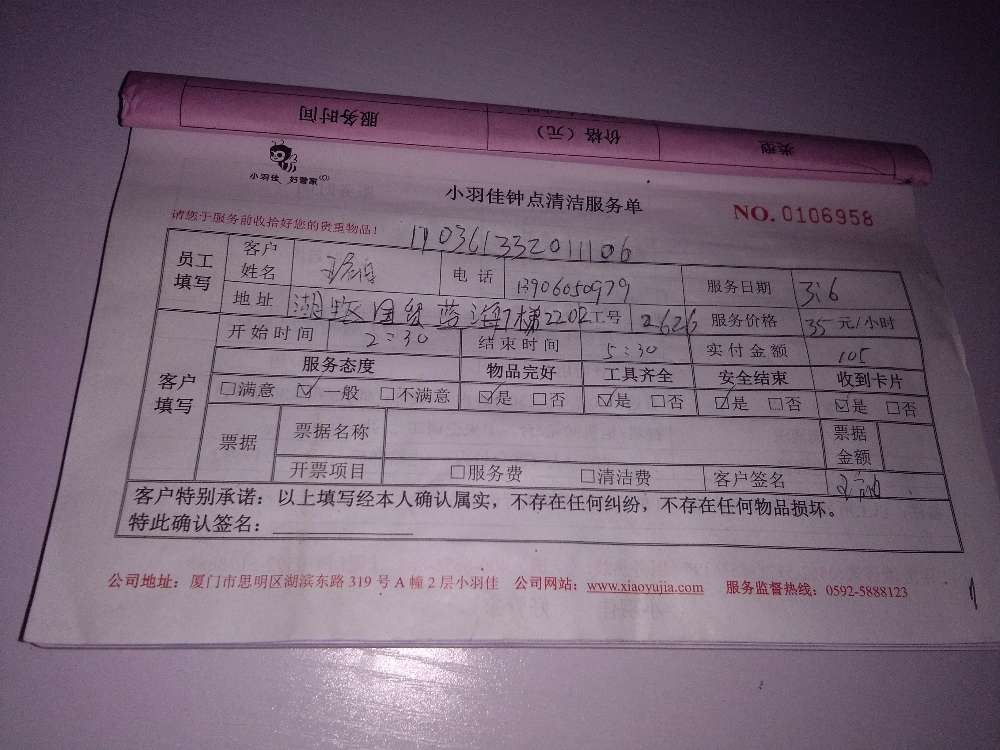 服务时间 价格（元） 类型
小羽佳 好管家
小羽佳钟点清洁服务单
NO. 0106958
请您于服务前收拾好您的贵重物品！
110361332011106
员工填写 客户姓名 电话 13906050979 服务日期 3:6
地址 湖 区国贸蓝海7梯2202 工号 2626 服务价格 35 元/小时
客户填写 开始时间 2:30 结束时间 5:30 实付金额 105
服务态度 物品完好 工具齐全 安全结束 收到卡片
□满意 ☑一般 □不满意 ☑是 □否 ☑是 □否 ☑是 □否 ☑是 □否
票据 票据名称 票据金额
开票项目 □服务费 □清洁费 客户签名
客户特别承诺：以上填写经本人确认属实，不存在任何纠纷，不存在任何物品损坏。
特此确认签名：
公司地址：厦门市思明区湖滨东路 319 号 A 幢 2 层小羽佳 公司网站：www.xiaoyujia.com 服务监督热线：0592-5888123